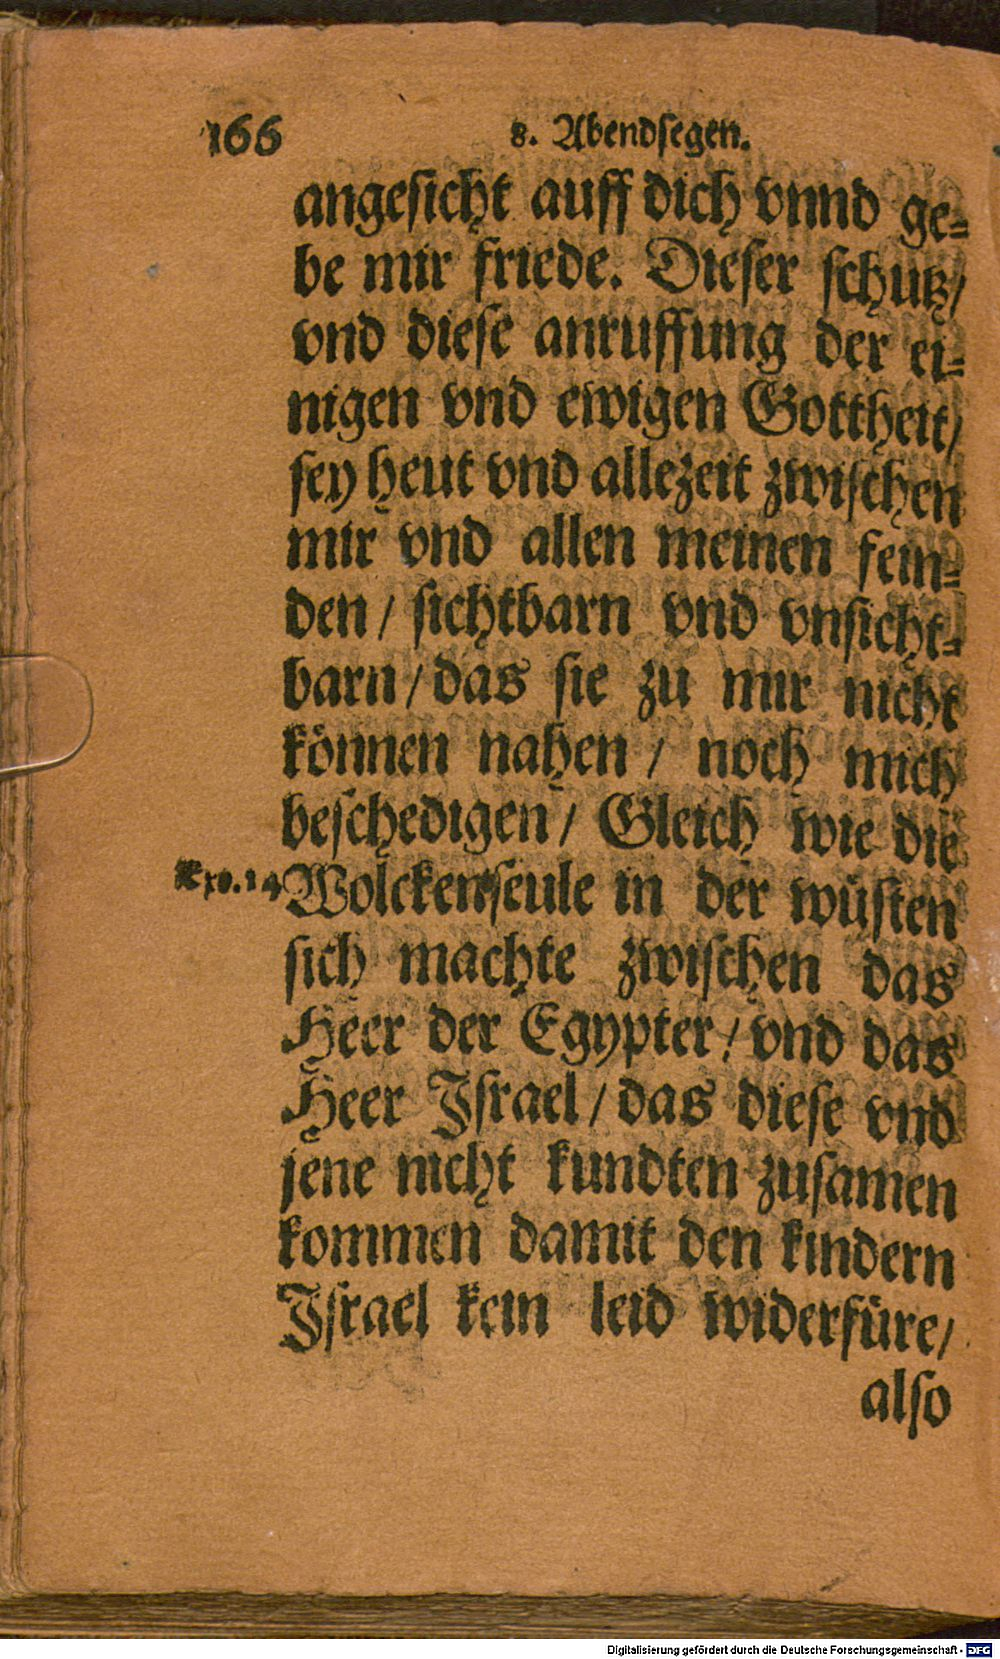 166
8. Abendsegen.
angesicht auff dich vnnd ge-
be mir friede. Dieser schutz/
vnd diese anruffung der ei-
nigen vnd ewigen Gottheit/
sey heut vnd allezeit zwischen
mir vnd allen meinen fein-
den / sichtbarn vnd vnsicht-
barn / das sie zu mir nicht
können nahen / noch mich
beschedigen / Gleich wie die
Exo. 14
Wolckenseule in der wüsten
sich machte zwischen das
Heer der Egypter / vnd das
Heer Israel / das diese vnd
jene nicht kundten zusamen
kommen damit den kindern
Israel kein leid widerfüre /
also
Digitalisierung gefördert durch die Deutsche Forschungsgemeinschaft - DFG